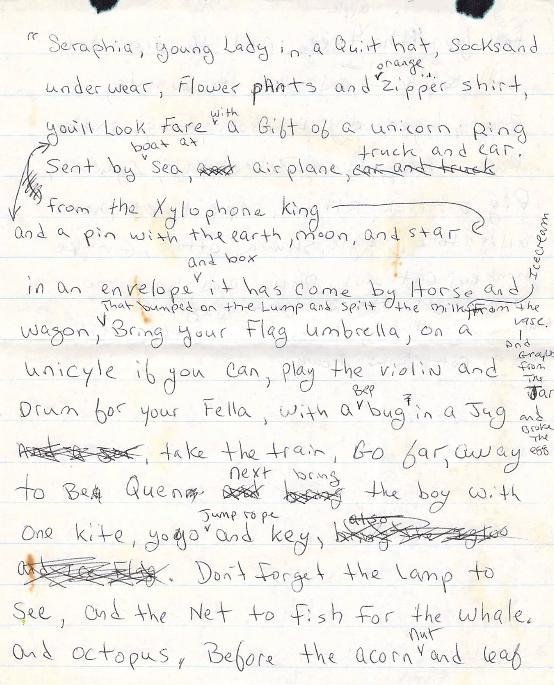 " Seraphia, young Lady in a Quit hat, Socksand
orange
underwear, Flower pants and zipper shirt,
with
you'll Look Fare a Gift of a unicorn Ring
boat at truck and car.
Sent by Sea, and airplane, car and truck
from the Xylophone king
and a pin with the earth, moon, and star
and box
in an envelope it has come by Horse and
Icecream
That bumped on the Lump and Spilt the milk from the
vase.
wagon, Bring your Flag umbrella, on a
and
Grapes
from
The
Jar
unicyle if you can, play the violin and
Bep
Drum for your Fella, with a bug in a Jug
and
Broke
The
egg
, take the train, Go far, away
next bring
to Be Quen the boy with
Jump rope
One kite, yoyo and key,
also
. Don't forget the Lamp to
See, and the Net to fish for the whale.
nut
and octopus, Before the acorn and leaf